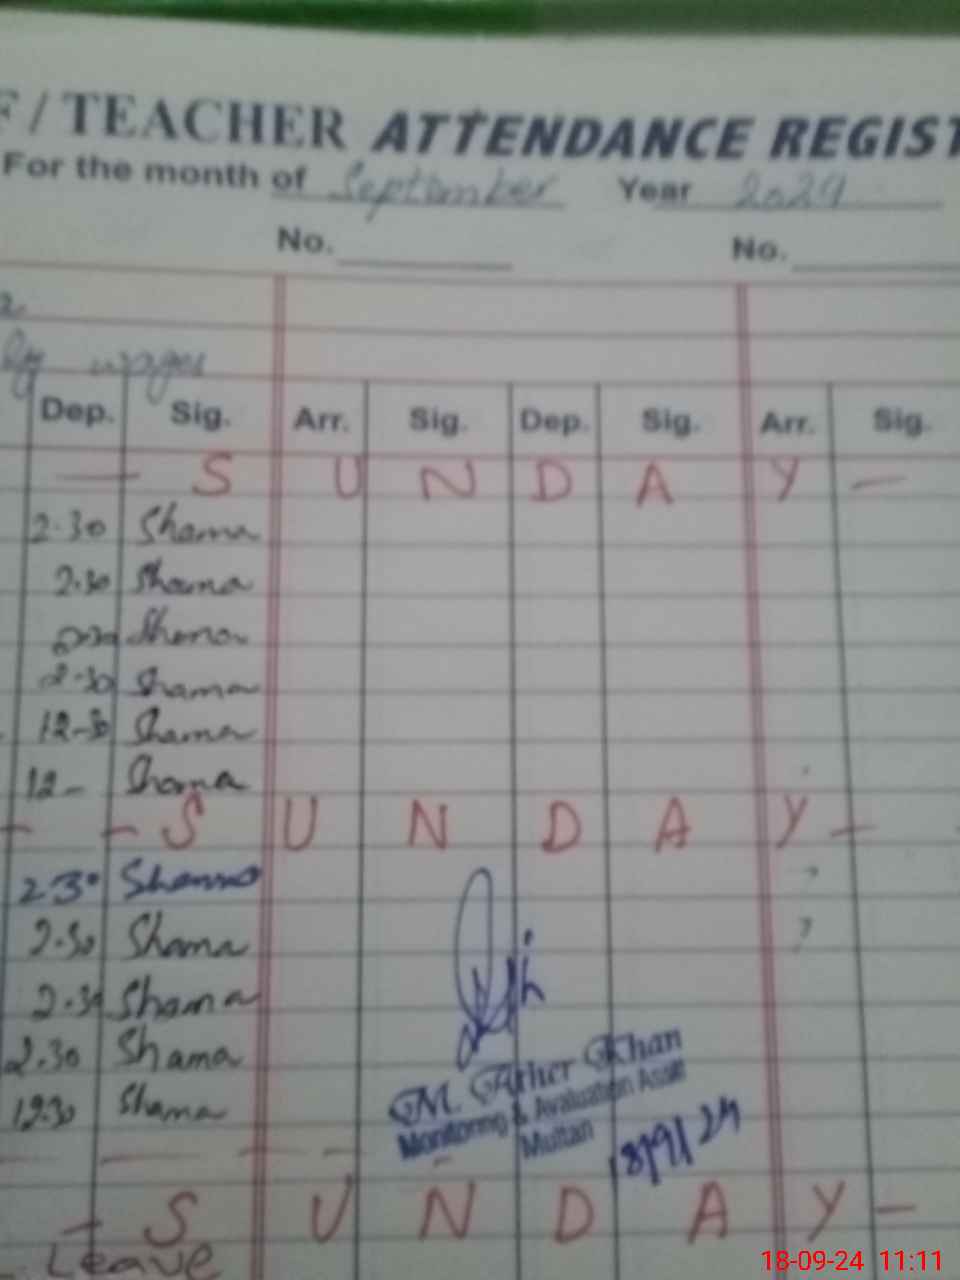 F / TEACHER ATTENDANCE REGIST
For the month of September Year 2024
No. No.
wages
Dep. Sig. Arr. Sig. Dep. Sig. Arr. Sig.
— S U N D A Y —
2.30 Shama
2.30 Shama
Shama
2.30 Shama
12-30 Shama
12- Shama
— — S U N D A Y —
230 Shama
2.30 Shama
2.30 Shama
2.30 Shama
12.30 Shama
M. Ather Khan
Monitoring & Evaluation Asstt
Multan
18/9/24
— S U N D A Y —
Leave
18-09-24 11:11